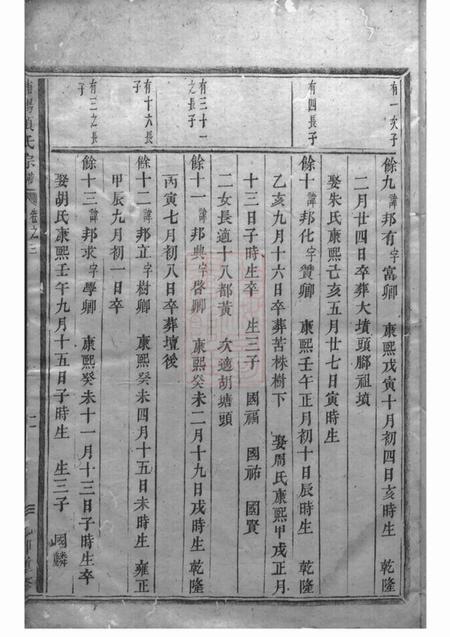 有一次子
餘九諱邦有字富卿 康熙戊寅十月初四日亥時生 乾隆
二月廿四日卒葬大墳頭腳祖墳
娶朱氏康熙己亥五月廿七日寅時生
有四長子
餘十諱邦化字贊卿 康熙壬午正月初十日辰時生 乾隆
乙亥九月十六日卒葬苦株樹下 娶周氏康熙甲戌正月
十三日子時生卒 生三子 國福 國祐 國賢
二女長適十八都黃 次適胡塘頭
有三十一之長子
餘十一諱邦典字啓卿 康熙癸未二月十九日戌時生 乾隆
丙寅七月初八日卒葬壇後
有十六長子
餘十二諱邦立字樹卿 康熙癸未四月十五日未時生 雍正
甲辰九月初一日卒
有三之長子
餘十三諱邦求字學卿 康熙癸未十一月十三日子時生卒
娶胡氏康熙壬午九月十五日子時生 生三子 國麟
項氏宗譜 卷之三